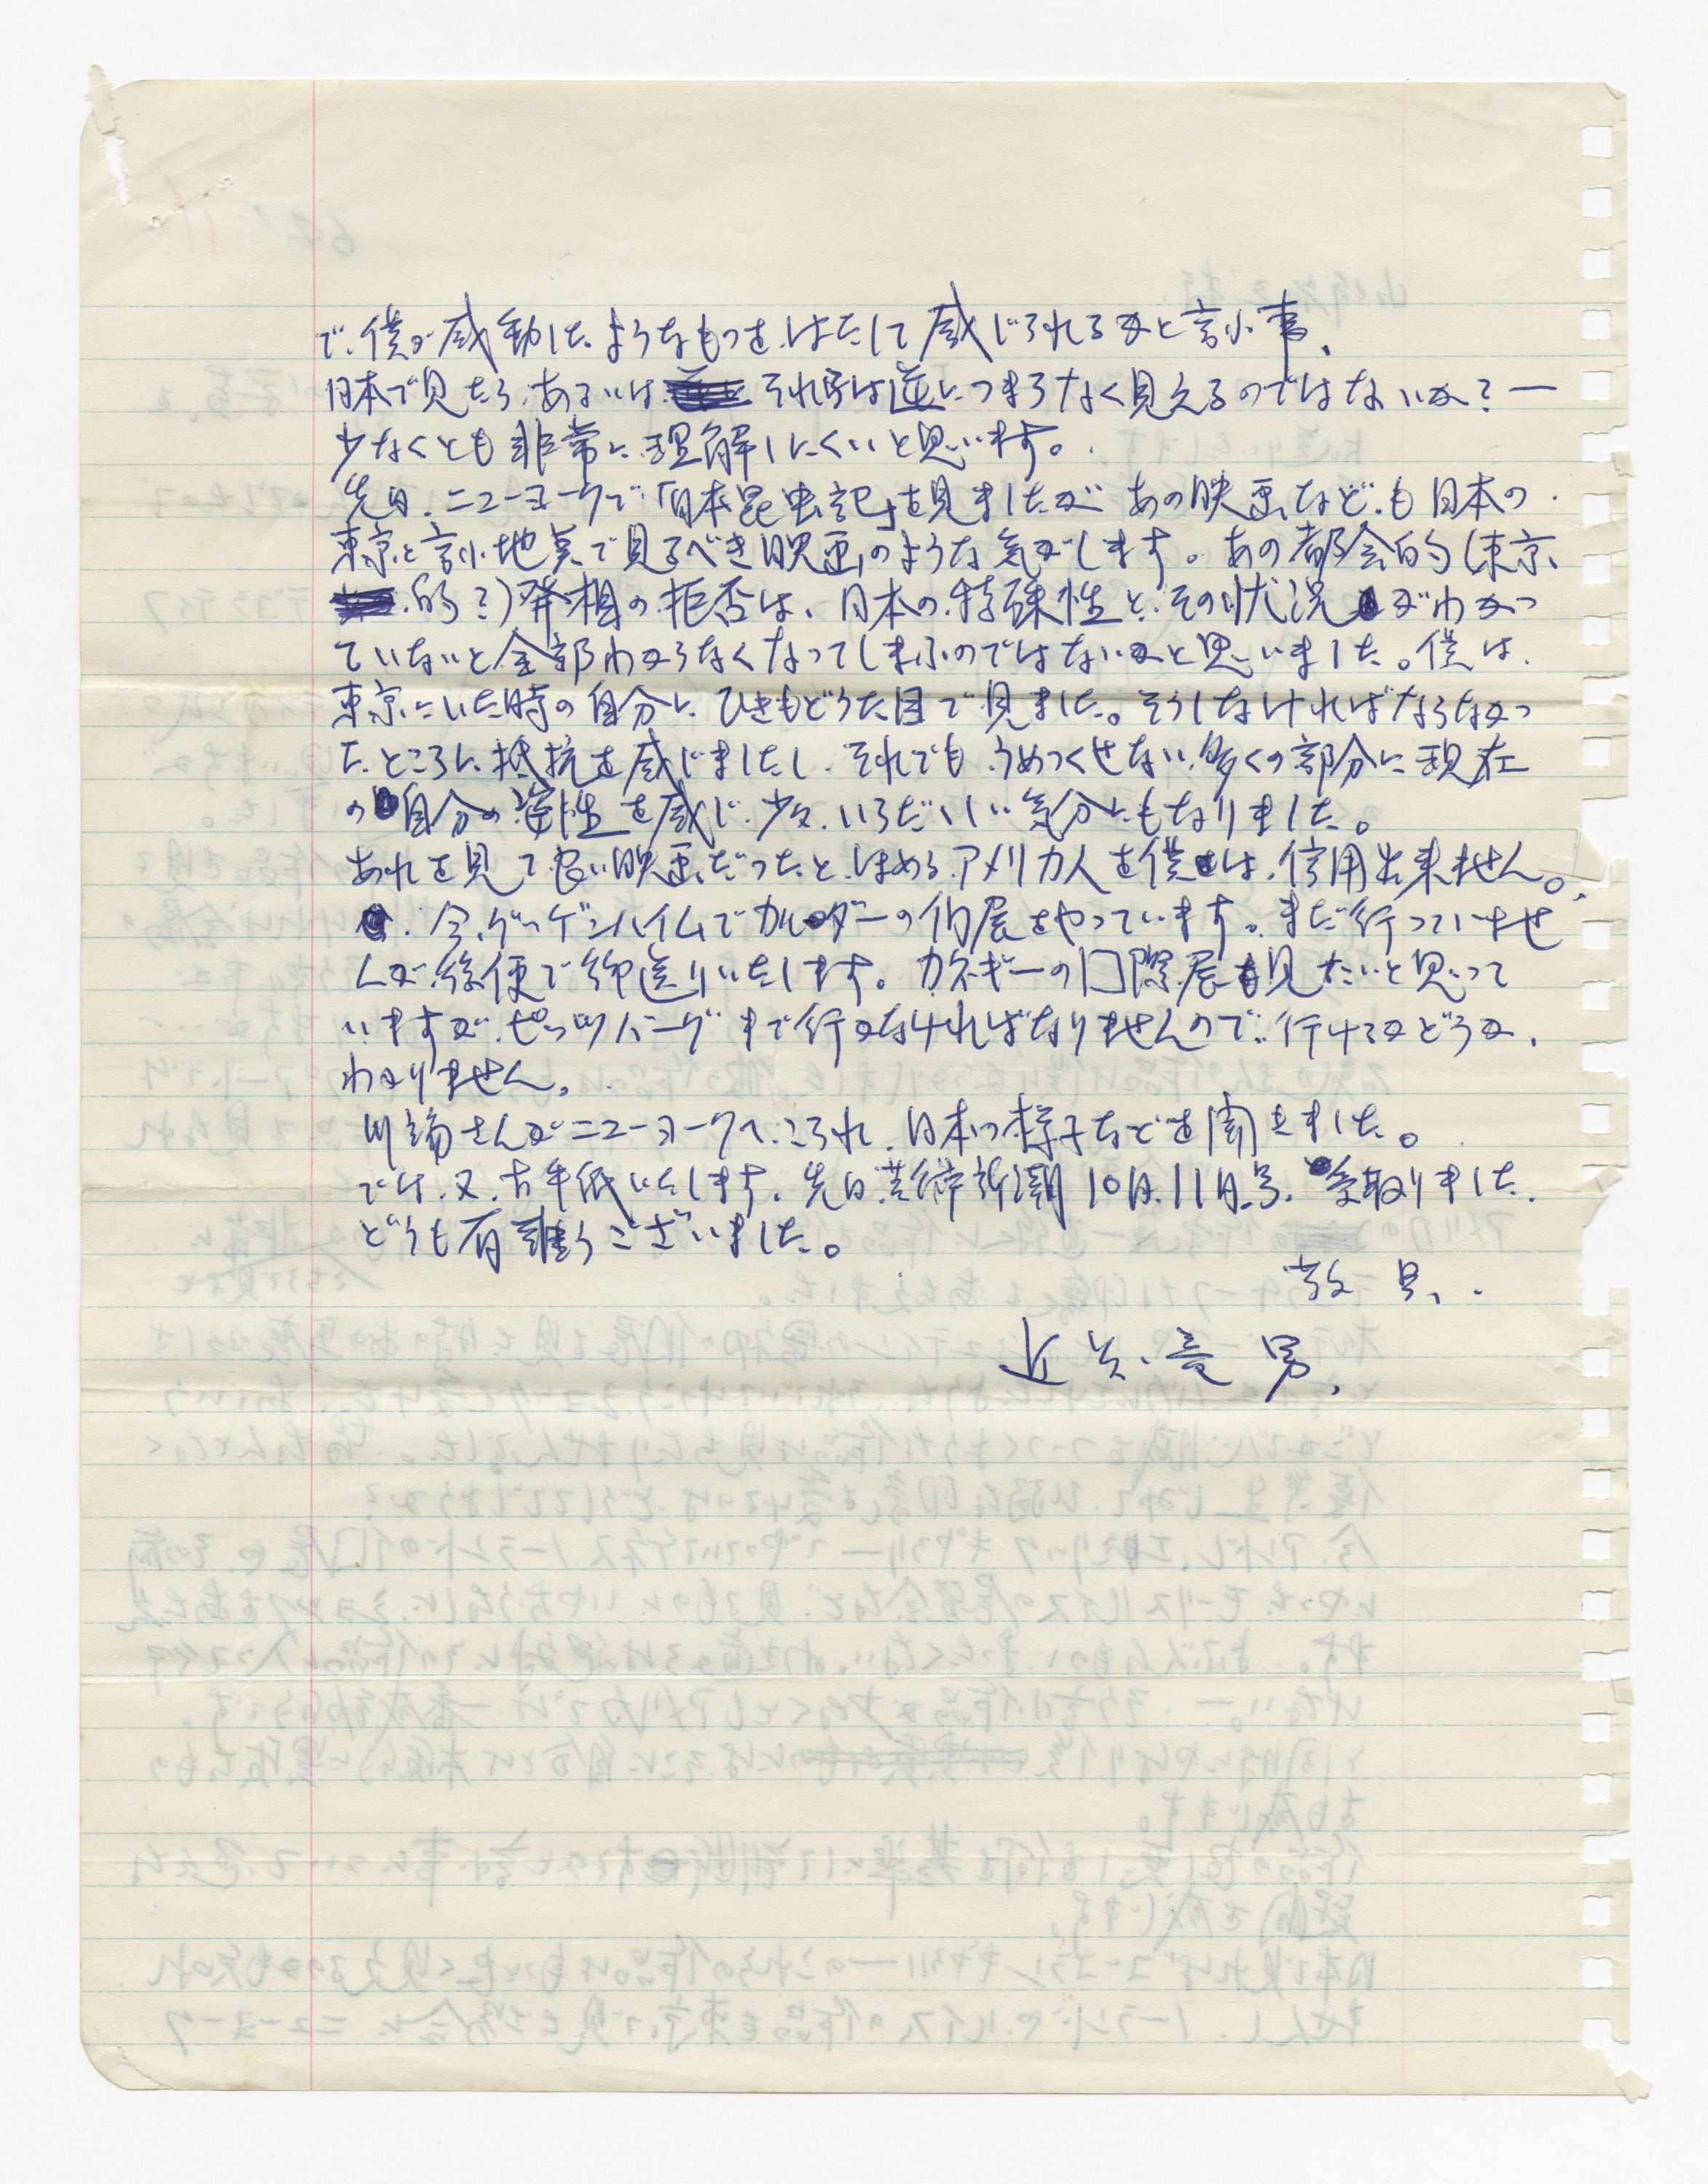 で、僕が感動したようなものを、はたして感じられるかと言ふ事、
日本で見たら、あるいは それ等は逆につまらなく見えるのではないか？ー
少なくとも非常に理解しにくいと思います。
先日、ニューヨークで「日本昆虫記」を見ましたが あの映画なども日本の
東京と言ふ地点で見るべき映画のような気がします。あの都会的（東京
的？）発想の拒否は、日本の特殊性と、その状況がわかっ
ていないと全部わからなくなってしまふのではないかと思いました。僕は
東京にいた時の自分に ひきもどうた目で見ました。そうしなければならなかっ
たところに抵抗を感じましたし、それでも うめつくせない多くの部分に現在
の自分の 性を感じ、少々いらだヽしい気分にもなりました。
あれを見て良い映画だったと、ほめるアメリカ人を僕は、信用出来ません。
今、グッゲンハイムでカルダーの個展をやっています。まだ行っていませ
んが、後便で御送りいたします。カネギーの国際展も見たいと思って
いますが、ピッツバーグまで行かなければなりませんので、行けるかどうか、
わかりません。
川端さんがニューヨークへこられ、日本の様子などを聞きました。
では、又、お手紙いたします。先日、芸術新潮10月、11月号、受取りました。
どうも有難うございました。
敬具、
近 竜男、